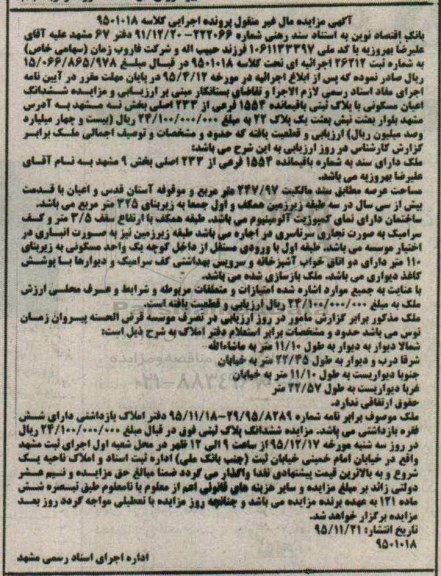 آگهی مزایده مال غیر منقول پرونده اجرایی کلاسه ۹۵۰۱۰۱۸
بانک اقتصاد نوین به استناد سند رهنی شماره ۲۲۲۰۶۶-۹۱/۱۲/۲۰ دفتر ۶۷ مشهد علیه آقای
علیرضا بهروزیه با کد ملی ۱۰۶۱۱۳۳۳۹۷ فرزند حبیب اله و شرکت فاروب زمان (سهامی خاص)
ثبت ۲۶۲۱۲ اجرائیه ای تحت کلاسه ۹۵۰۱۰۱۸ در قبال مبلغ ۱۵/۰۶۶/۸۶۵/۹۷۸
ریال صادر نموده که پس از ابلاغ اجرائیه در مورخه ۹۵/۴/۱۲ در پایان مهلت مقرر در آیین نامه
اجرای مفاد اسناد رسمی لازم الاجرا و تقاضای بستانکار مبنی بر ارزیابی و مزایده ششدانگ
اعیان مسکونی با پلاک ثبتی باقیمانده ۱۵۵۴ فرعی از ۲۳۳ اصلی بخش نه مشهد به آدرس
مشهد بلوار بعثت نبش بعثت یک پلاک ۲۲ به مبلغ ۲۴/۱۰۰/۰۰۰/۰۰۰ ریال (بیست و چهار میلیارد
وصد میلیون ریال) ارزیابی و قطعیت یافته که حدود و مشخصات و توصیف اجمالی ملک برابر
گزارش کارشناس در روز ارزیابی به این شرح می باشد:
ملک دارای سند به شماره باقیمانده ۱۵۵۴ فرعی از ۲۳۳ اصلی بخش ۹ مشهد به نام آقای
علیرضا بهروزیه می باشد.
مساحت عرصه مطابق سند مالکیت ۲۴۷/۹۷ متر مربع و موقوفه آستان قدس و اعیان با قدمت
بیش از سی سال در سه طبقه زیرزمین همکف و اول جمعا به زیربنای ۳۲۵ متر مربع می باشد.
ساختمان دارای نمای کمپوزیت آلومینیوم می باشد. طبقه همکف با ارتفاع سقف ۳/۵ متر و کف
سرامیک به صورت تجاری سرتاسری در اجاره می باشد طبقه زیرزمین نیز به صورت انباری در
اختیار موسسه می باشد. طبقه اول با ورودی مستقل از داخل کوچه یک واحد مسکونی به زیربنای
۱۱۰ متر دارای دو اتاق خواب آشپزخانه و سرویس بهداشتی کف سرامیک و دیوارها با پوشش
کاغذ دیواری می باشد. ملک بازسازی شده می باشد.
با عنایت به جمیع موارد اشاره شده امتیازات و متعلقات مربوطه و شرایط و عرف محلی ارزش
ملک به مبلغ ۲۴/۱۰۰/۰۰۰/۰۰۰ ریال ارزیابی و قطعیت یافته است.
ملک مذکور برابر گزارش مامور در روز ارزیابی در تصرف موسسه قرض الحسنه پیروان زمان
توس می باشد حدود و مشخصات برابر استعلام دفتر املاک به شرح ذیل است:
شمالا دیوار به دیوار به طول ۱۱/۱۰ متر به ماشاءالله
شرقا درب و دیوار به طول ۲۲/۴۵ متر به خیابان
جنوبا دیواریست به طول ۱۱/۱۰ متر به خیابان
غربا دیواریست به طول ۲۲/۵۷ متر
حقوق ارتفاقی ندارد.
ملک موصوف برابر نامه شماره ۲۹/۹۵/۸۲۸۹-۹۵/۱۱/۱۸ دفتر املاک بازداشتی دارای شش
فقره بازداشتی می باشد. مزایده ششدانگ پلاک ثبتی فوق در قبال مبلغ ۲۴/۱۰۰/۰۰۰/۰۰۰ ریال
در روز سه شنبه مورخه ۹۵/۱۲/۱۷ از ساعت ۹ الی ۱۲ ظهر در محل شعبه اول اجرای ثبت مشهد
واقع در خیابان امام خمینی خیابان ثبت (جنب بانک ملی) اداره ثبت اسناد و املاک ناحیه یک
شروع و به بالاترین قیمت پیشنهادی نقدا واگذار می گردد ضمنا مبالغ حق مزایده و نیم عشر
دولتی زائد بر مبلغ مزایده و سایر هزینه های قانونی اعم از معلوم یا نامعلوم طبق تبصره شش
ماده ۱۲۱ به عهده برنده مزایده می باشد و چنانچه روز مزایده با تعطیلی مواجه گردد روز بعد
مزایده برگزار خواهد شد.
تاریخ انتشار: ۹۵/۱۱/۲۱
۹۵۰۱۰۱۸
اداره اجرای اسناد رسمی مشهد